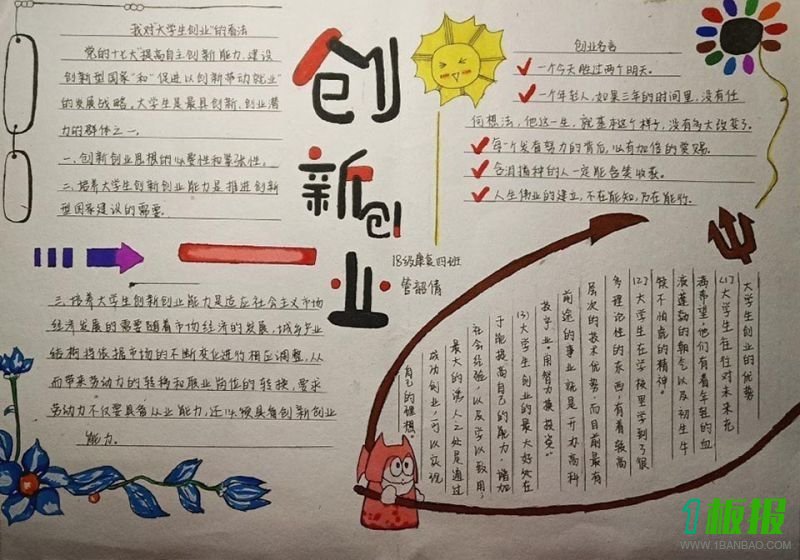 我对"大学生创业"的看法
党的十七大"提高自主创新能力,建设
创新型国家"和"促进以创新带动就业"
的发展战略,大学生是最具创新、创业潜
力的群体之一。
一.创新创业思想的必要性和紧张性。
二.培养大学生创新创业能力是推进创新
型国家建设的需要。
三.培养大学生创新创业能力是适应社会主义市场
经济发展的需要随着市场经济的发展,城乡产业
结构将依据市场的不断变化进行相应调整,从
而带来劳动力的转移和职业岗位的转换,要求
劳动力不仅要具备从业能力,还必须具备创新创业
能力。
创
新创
业
18级康复四班
管韶倩
创业名言
一个今天胜过两个明天。
一个年轻人,如果三年的时间里,没有任
何想法,他这一生,就基本这个样子,没有多大改变了。
每一个发奋努力的背后,必有加倍的赏赐。
含泪播种的人一定能含笑收获。
人生伟业的建立,不在能知,乃在能行。
大学生创业的优势
(1)大学生往往对未来充
满希望,他们有着年轻的血
液蓬勃的朝气以及初生牛
犊不怕虎的精神。
(2)大学生在学校里学到了很
多理论性的东西,有着较高
层次的技术优势,而目前最有
前途的事业就是开办高科
技产业。用智力换投资。
(3)大学生创业的最大好处在
于能提高自己的能力,增加
社会经验,以及学以致用,
最大的诱人之处是通过
成功创业,可以实现
自己的理想。
1板报
WWW.1BANBAO.COM